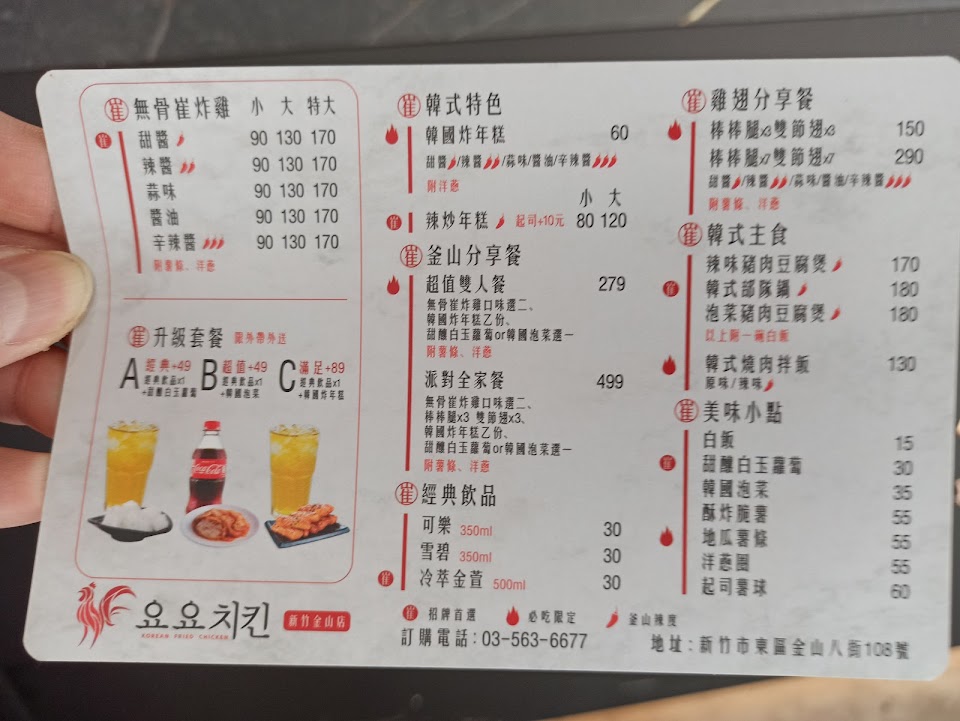 崔 無骨崔炸雞 小 大 特大
崔 甜醬 90 130 170
辣醬 90 130 170
蒜味 90 130 170
醬油 90 130 170
辛辣醬 90 130 170
附薯條、洋蔥
崔 升級套餐 限外帶外送
A 經典+49
經典飲品x1
+甜釀白玉蘿蔔
B 超值+49
經典飲品x1
+韓國泡菜
C 滿足+89
經典飲品x1
+韓國炸年糕
Coca-Cola
요요치킨 新竹金山店
KOREAN FRIED CHICKEN
崔 韓式特色
韓國炸年糕 60
甜醬/辣醬/蒜味/醬油/辛辣醬
附洋蔥
小 大
崔 辣炒年糕 起司+10元 80 120
崔 釜山分享餐
超值雙人餐 279
無骨崔炸雞口味選二、
韓國炸年糕乙份、
甜釀白玉蘿蔔or韓國泡菜選一
附薯條、洋蔥
派對全家餐 499
無骨崔炸雞口味選二、
棒棒腿x3 雙節翅x3、
韓國炸年糕乙份、
甜釀白玉蘿蔔or韓國泡菜選一
附薯條、洋蔥
崔 經典飲品
可樂 350ml 30
雪碧 350ml 30
崔 冷萃金萱 500ml 30
崔 招牌首選 必吃限定 釜山辣度
訂購電話:03-563-6677
崔 雞翅分享餐
棒棒腿x3雙節翅x3 150
棒棒腿x7雙節翅x7 290
甜醬/辣醬/蒜味/醬油/辛辣醬
附薯條、洋蔥
崔 韓式主食
辣味豬肉豆腐煲 170
崔 韓式部隊鍋 180
泡菜豬肉豆腐煲 180
以上附一碗白飯
韓式燒肉拌飯 130
原味/辣味
崔 美味小點
白飯 15
崔 甜釀白玉蘿蔔 30
韓國泡菜 35
酥炸脆薯 55
地瓜薯條 55
洋蔥圈 55
起司薯球 60
地址:新竹市東區金山八街108號